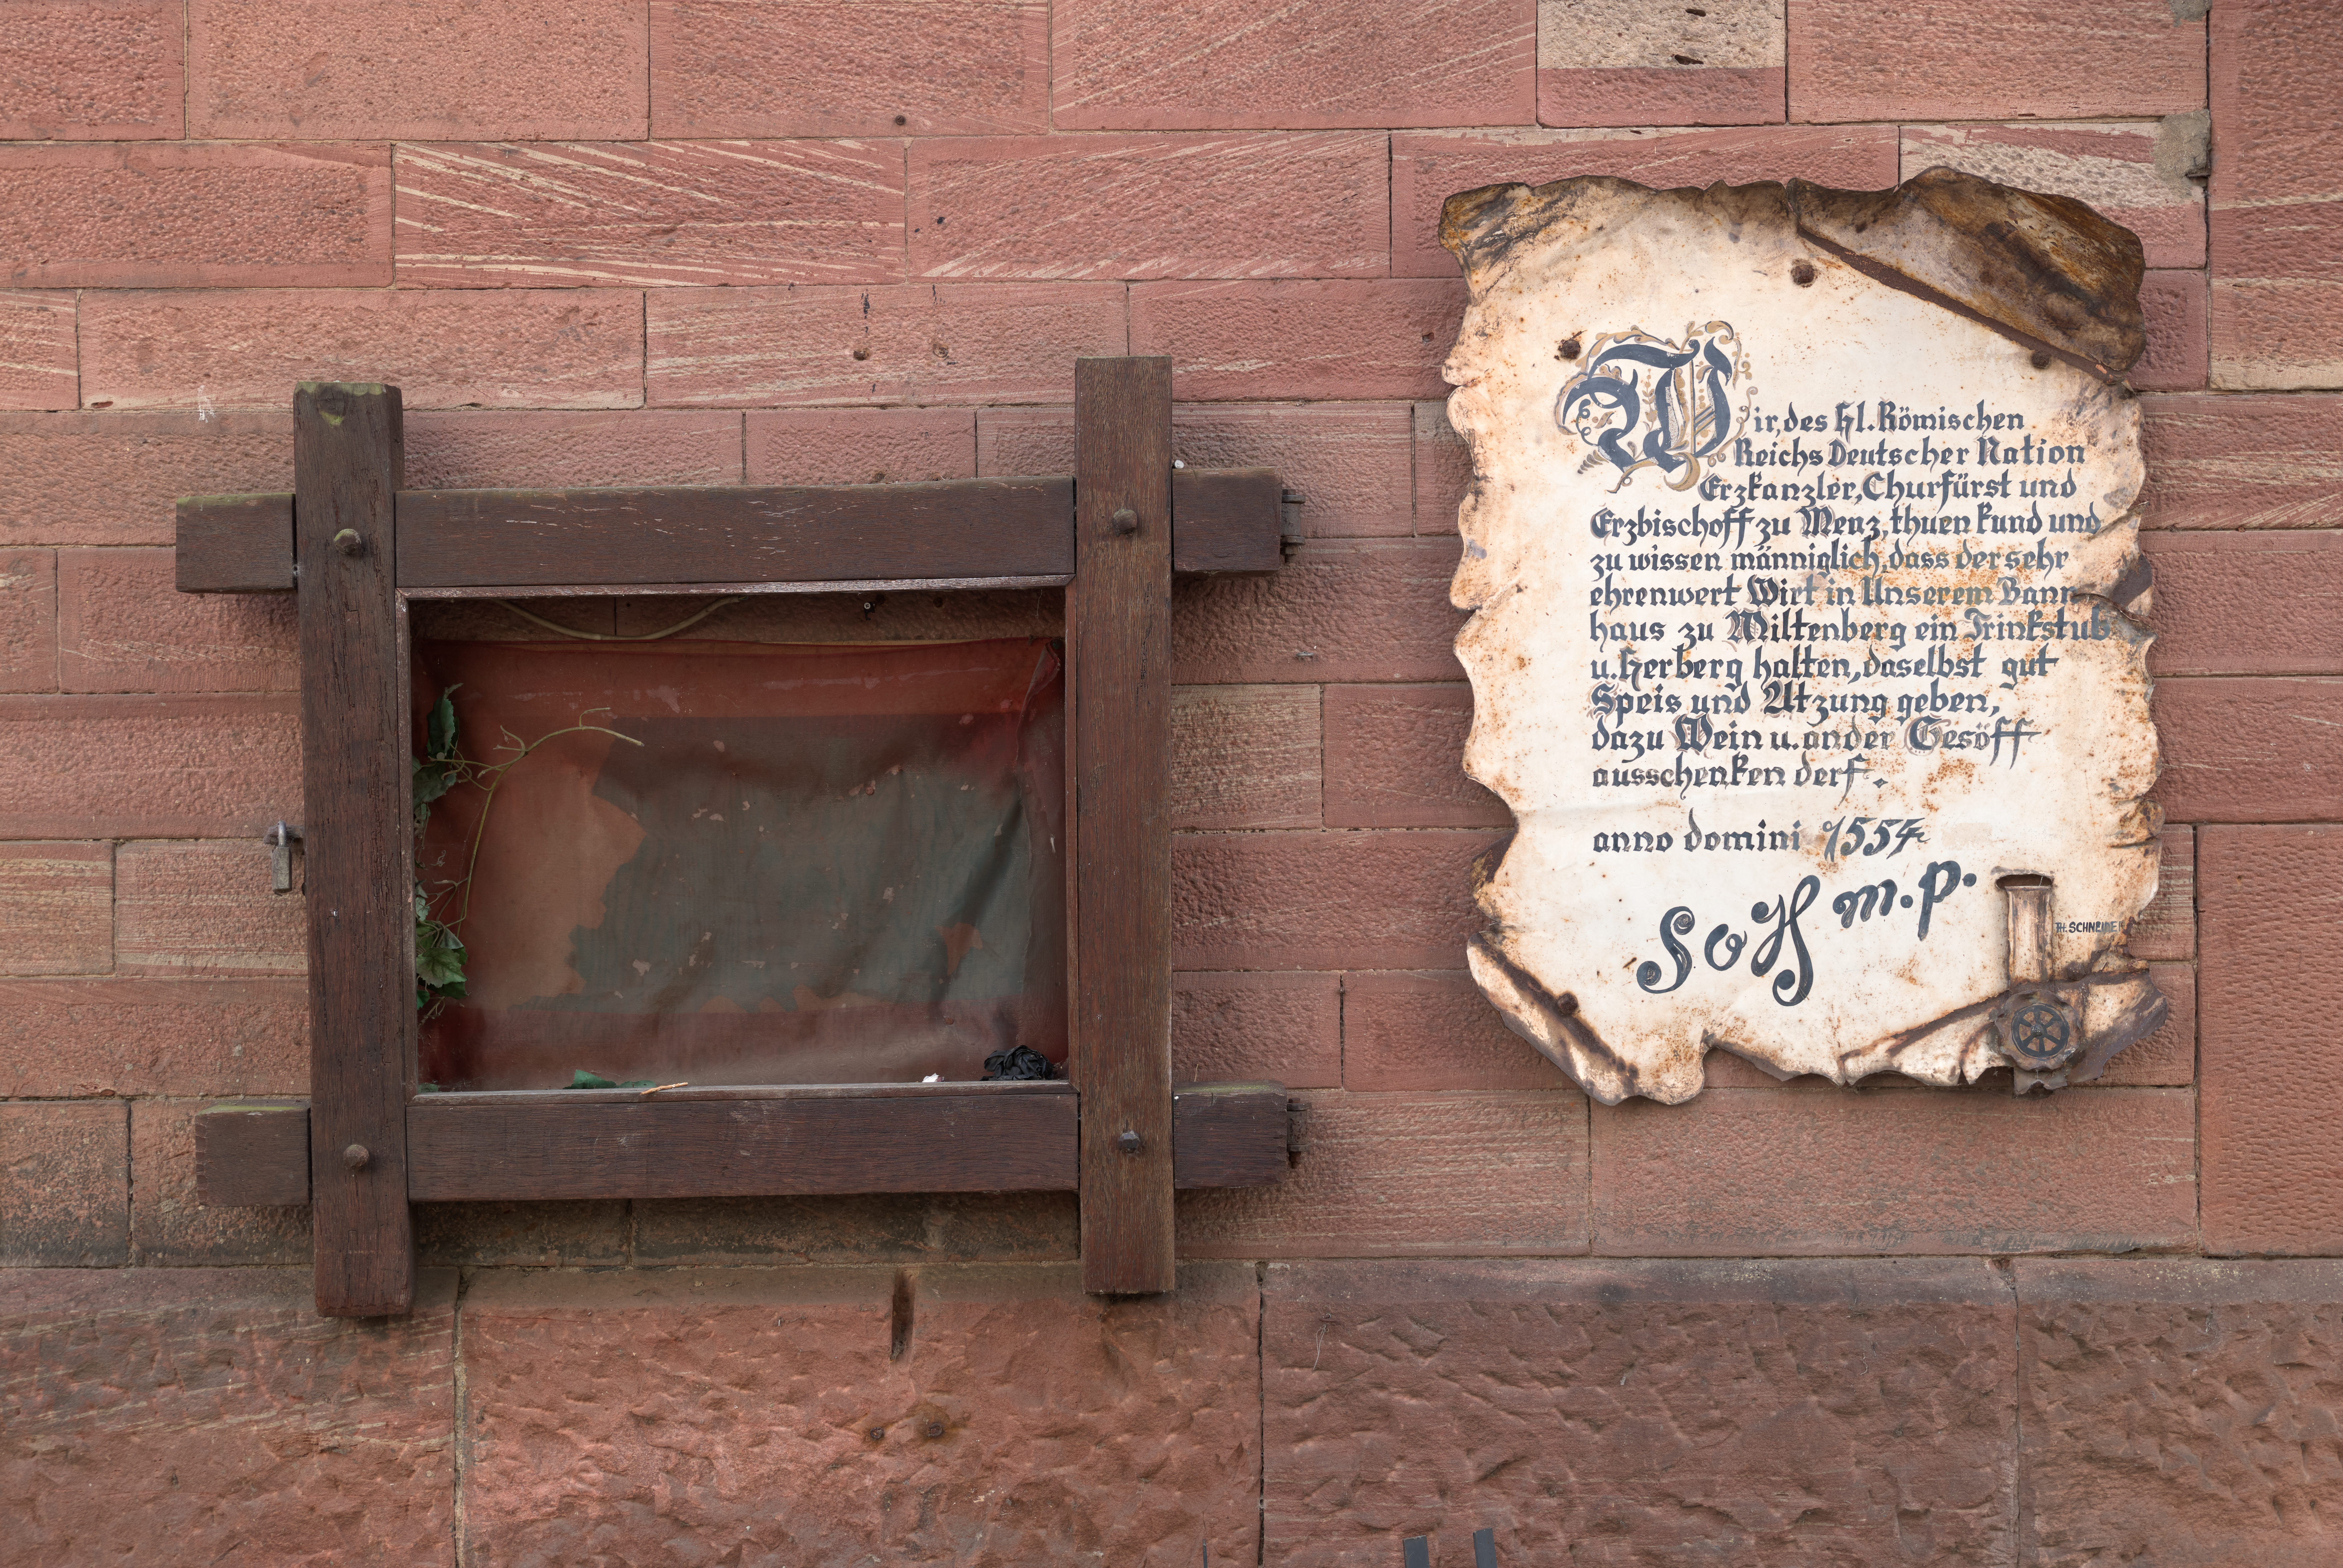 Wir, des hl. Römischen
Reichs Deutscher Nation
Erzkanzler, Churfürst und
Erzbischoff zu Menz, thuen kund und
zu wissen männiglich, dass der sehr
ehrenwert Wirt in Unserem Bann-
haus zu Miltenberg ein Trinkstub
u. Herberg halten, daselbst gut
Speis und Atzung geben,
dazu Wein u. ander Gesöff
ausschenken derf.
anno domini 1554
SoH m.p.
TH. SCHNEIDER